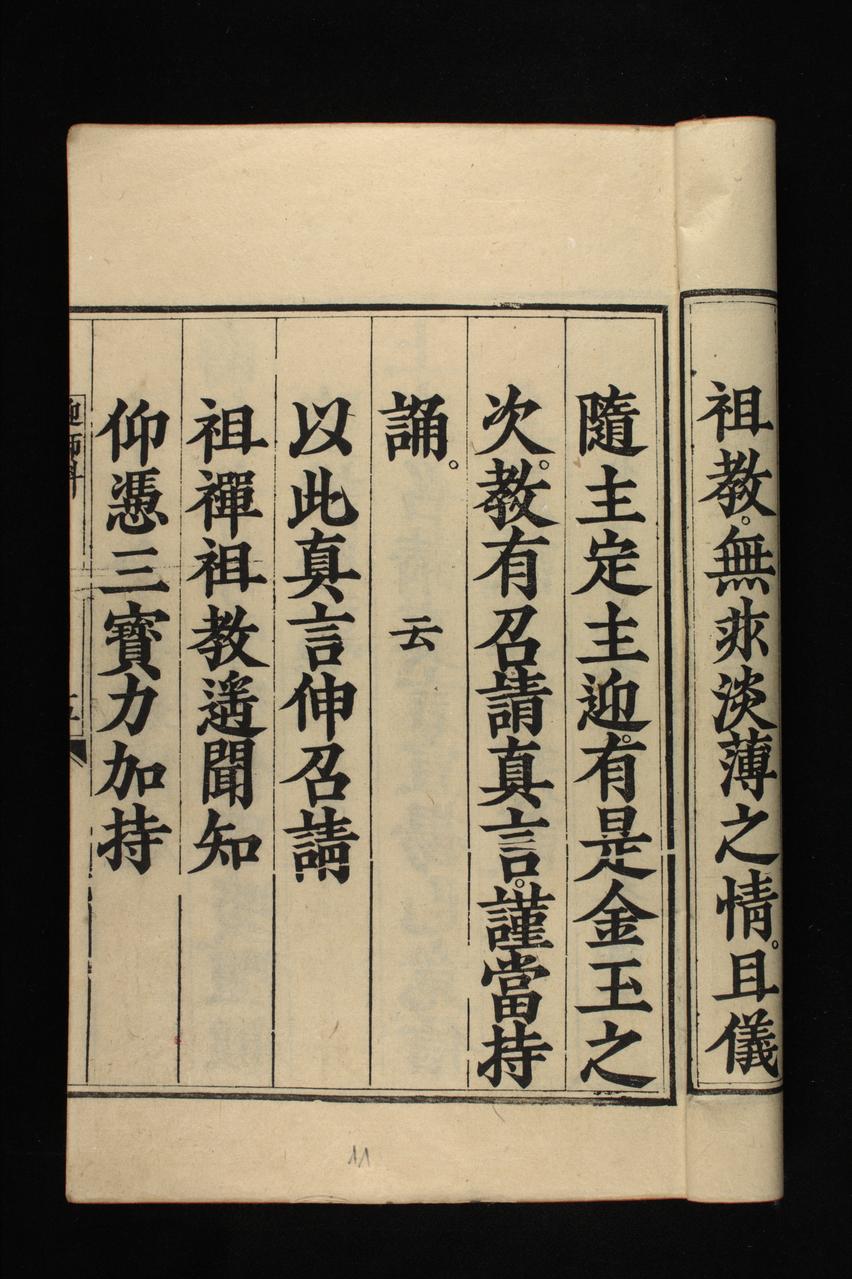 祖教。無求淡薄之情。且儀
隨主定主迎。有是金玉之
次。教有召請真言。謹當持
誦。 云
以此真言伸召請
祖禪祖教遥聞知
仰憑三寳力加持
迎師科
11